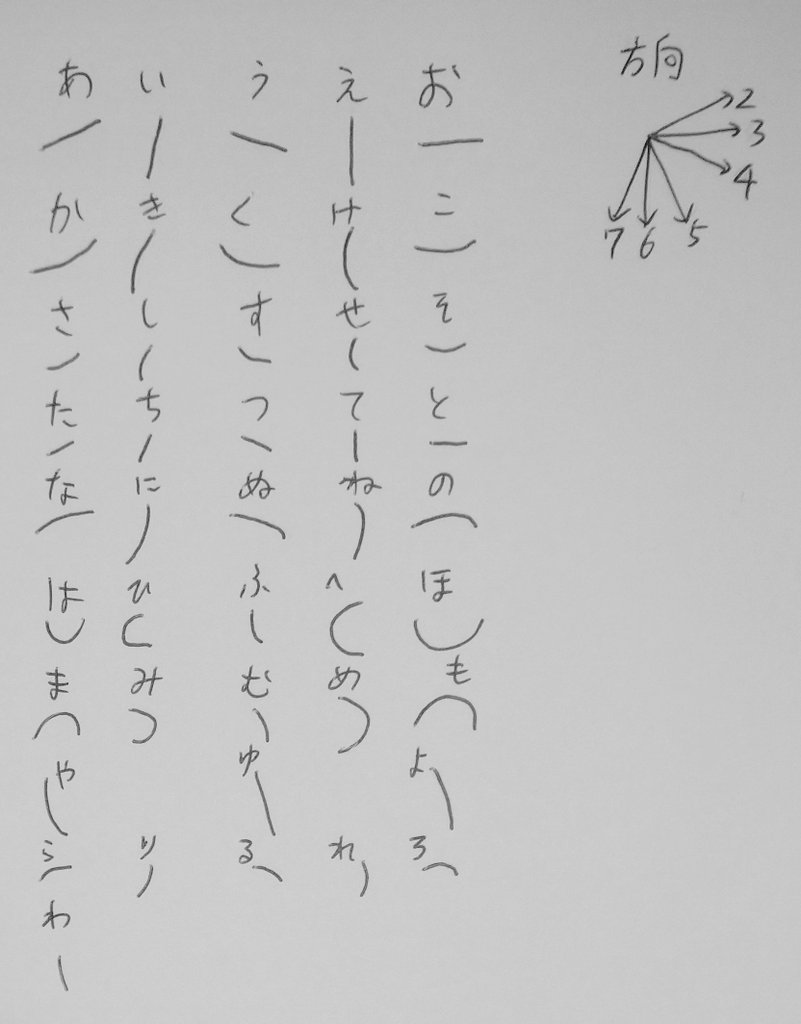 方向
2
3
4
5
6
7
あ い う え お
か き く け こ
さ し す せ そ
た ち つ て と
な に ぬ ね の
は ひ ふ へ ほ
ま み む め も
や ゆ よ
ら り る れ ろ
わ